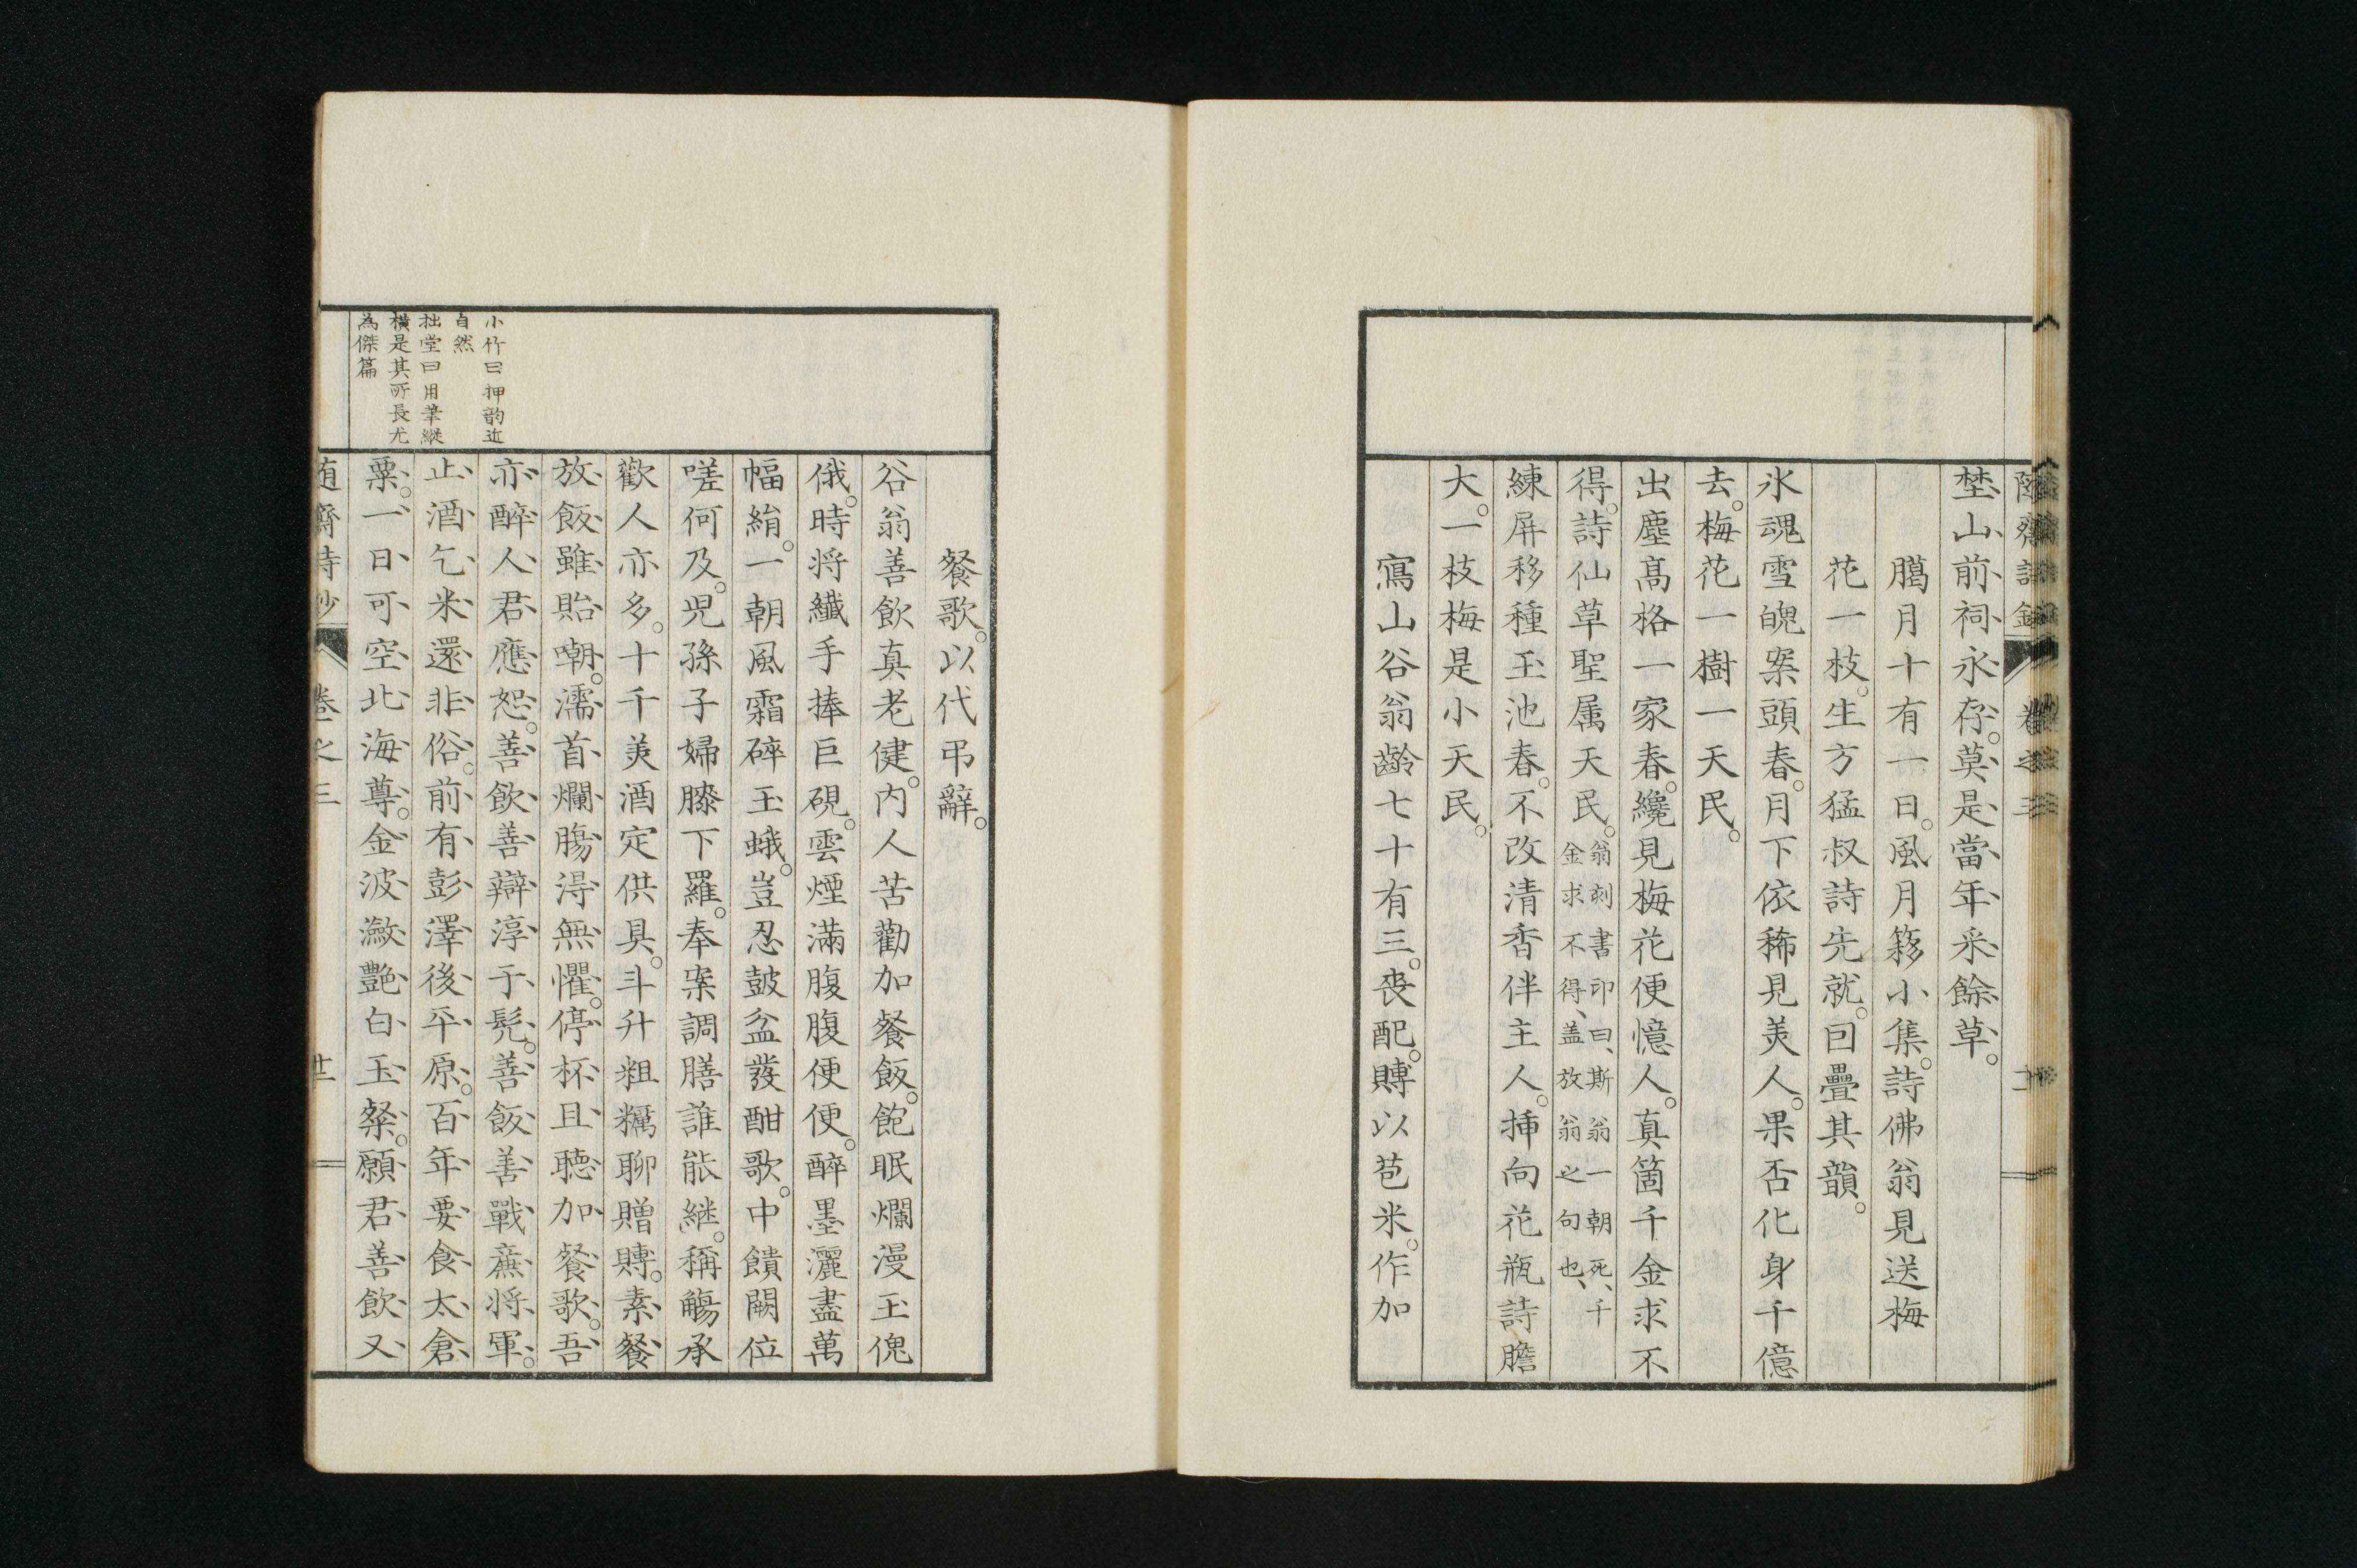 埜山前祠永存。莫是當年采餘草。
臈月十有一日。風月簃小集。詩佛翁見送梅
花一枝。生方猛叔詩先就。回疊其韻。
氷魂雪魄案頭春。月下依稀見美人。果否化身千億
去。梅花一樹一天民。
出塵髙格一家春。纔見梅花便憶人。真箇千金求不
得。詩仙草聖属天民。翁刻書印曰、斯翁一朝死、千
金求不得、盖放翁之句也、
練屏移種玉池春。不改清香伴主人。挿向花瓶詩膽
大。一枝梅是小天民。
窩山谷翁齡七十有三。喪配。賻以苞米。作加
餐歌。以代弔辭。
谷翁善飲真老健。内人苦勸加餐飯。飽眠爛漫玉傀
俄。時将纎手捧巨硯。雲煙滿腹腹便便。醉墨灑盡萬
幅絹。一朝風霜碎玉蛾。豈忍鼓盆發酣歌。中饋闕位
嗟何及。児孫子婦膝下羅。奉案調膳誰能継。稱觴承
歡人亦多。十千美酒定供具。斗升粗糲聊贈賻。素餐
放飯雖貽嘲。濡首爛膓得無懼。停杯且聴加餐歌。吾
亦醉人君應恕。善飲善辯淳于髡。善飯善戰廉将軍。
止酒乞米還非俗。前有彭澤後平原。百年要食太倉
粟。一日可空北海尊。金波瀲艶白玉粲。願君善飲又
小竹曰押韵近
自然
拙堂曰用筆縦
横是其所長尤
為傑篇
卷之三
廿